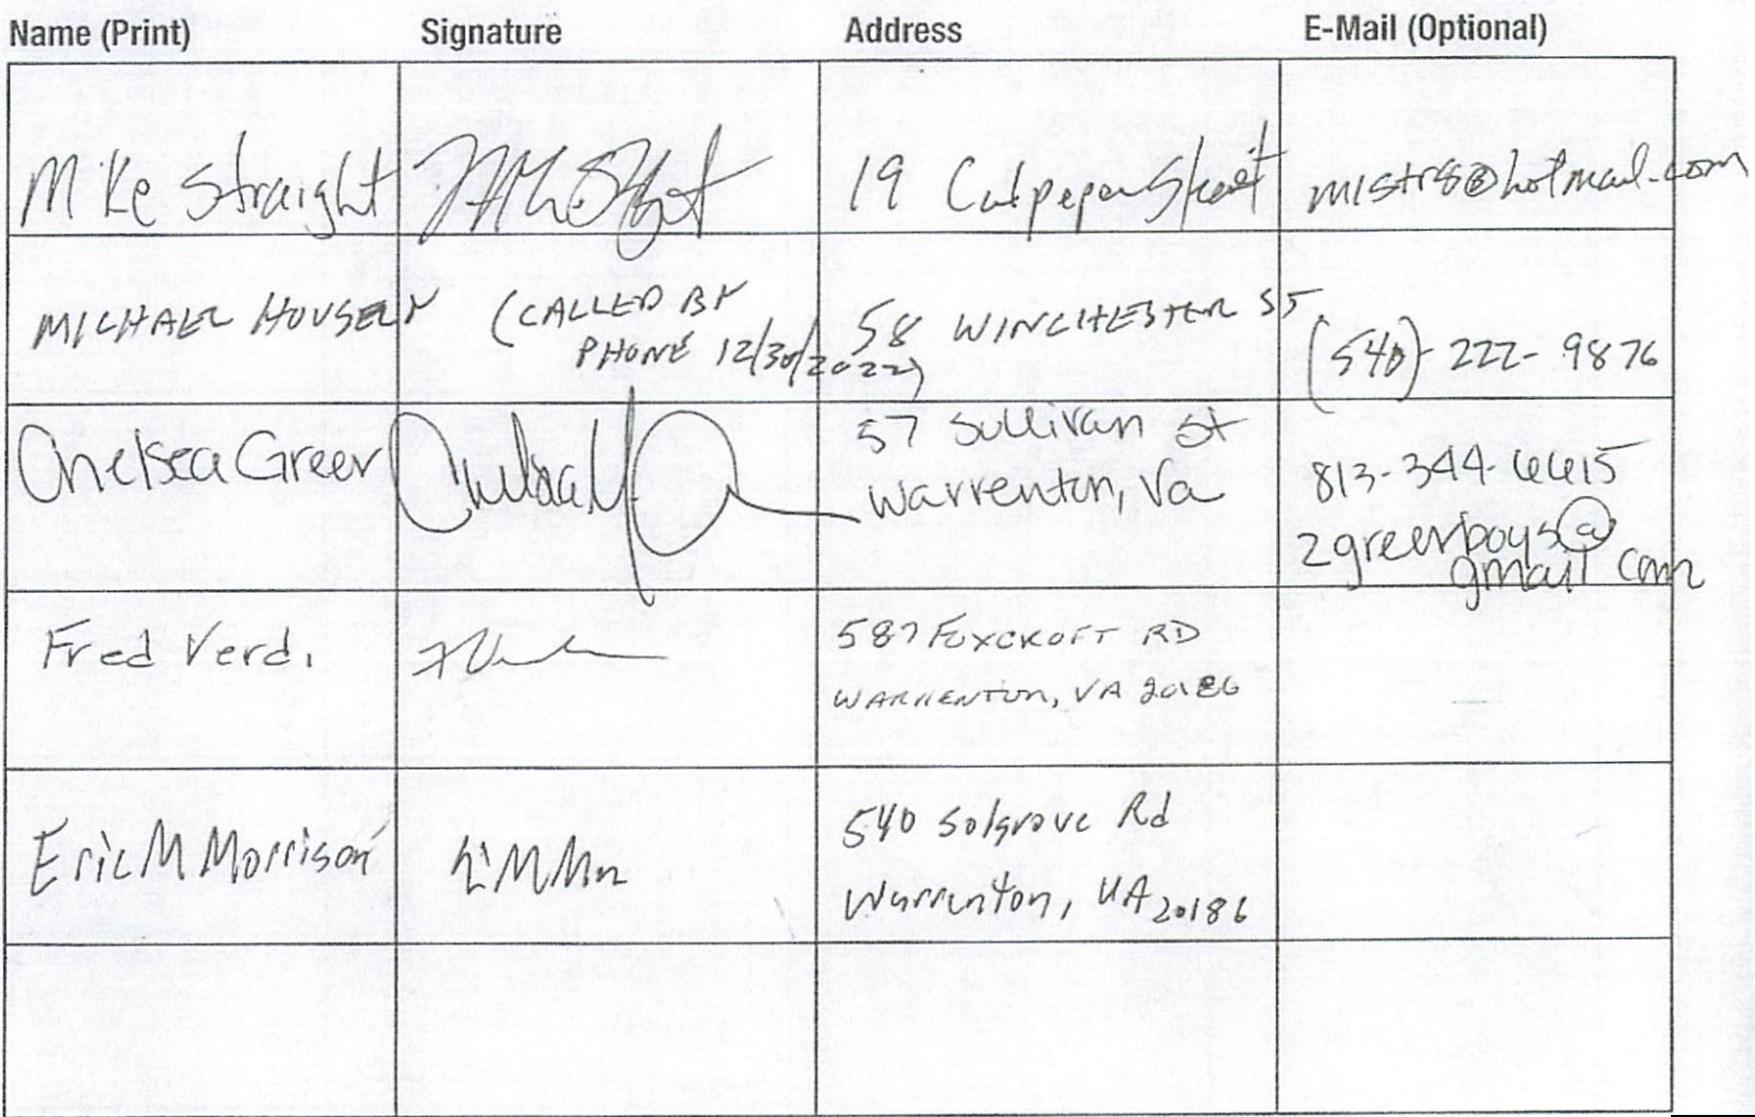 Name (Print) Signature Address E-Mail (Optional)
Mike Straight 19 Culpeper Street mistr8@hotmail.com
MICHAEL HOUSELY (CALLED BY 58 WINCHESTER ST
PHONE 12/30/2022) (540)-222-9876
Chelsea Green 57 Sullivan St
Warrenton, Va 813-344-6615
2greenboys@
gmail com
Fred Verdi 587 FOXCROFT RD
WARRENTON, VA 20186
Eric M Morrison 540 Solgrove Rd
Warrenton, VA 20186